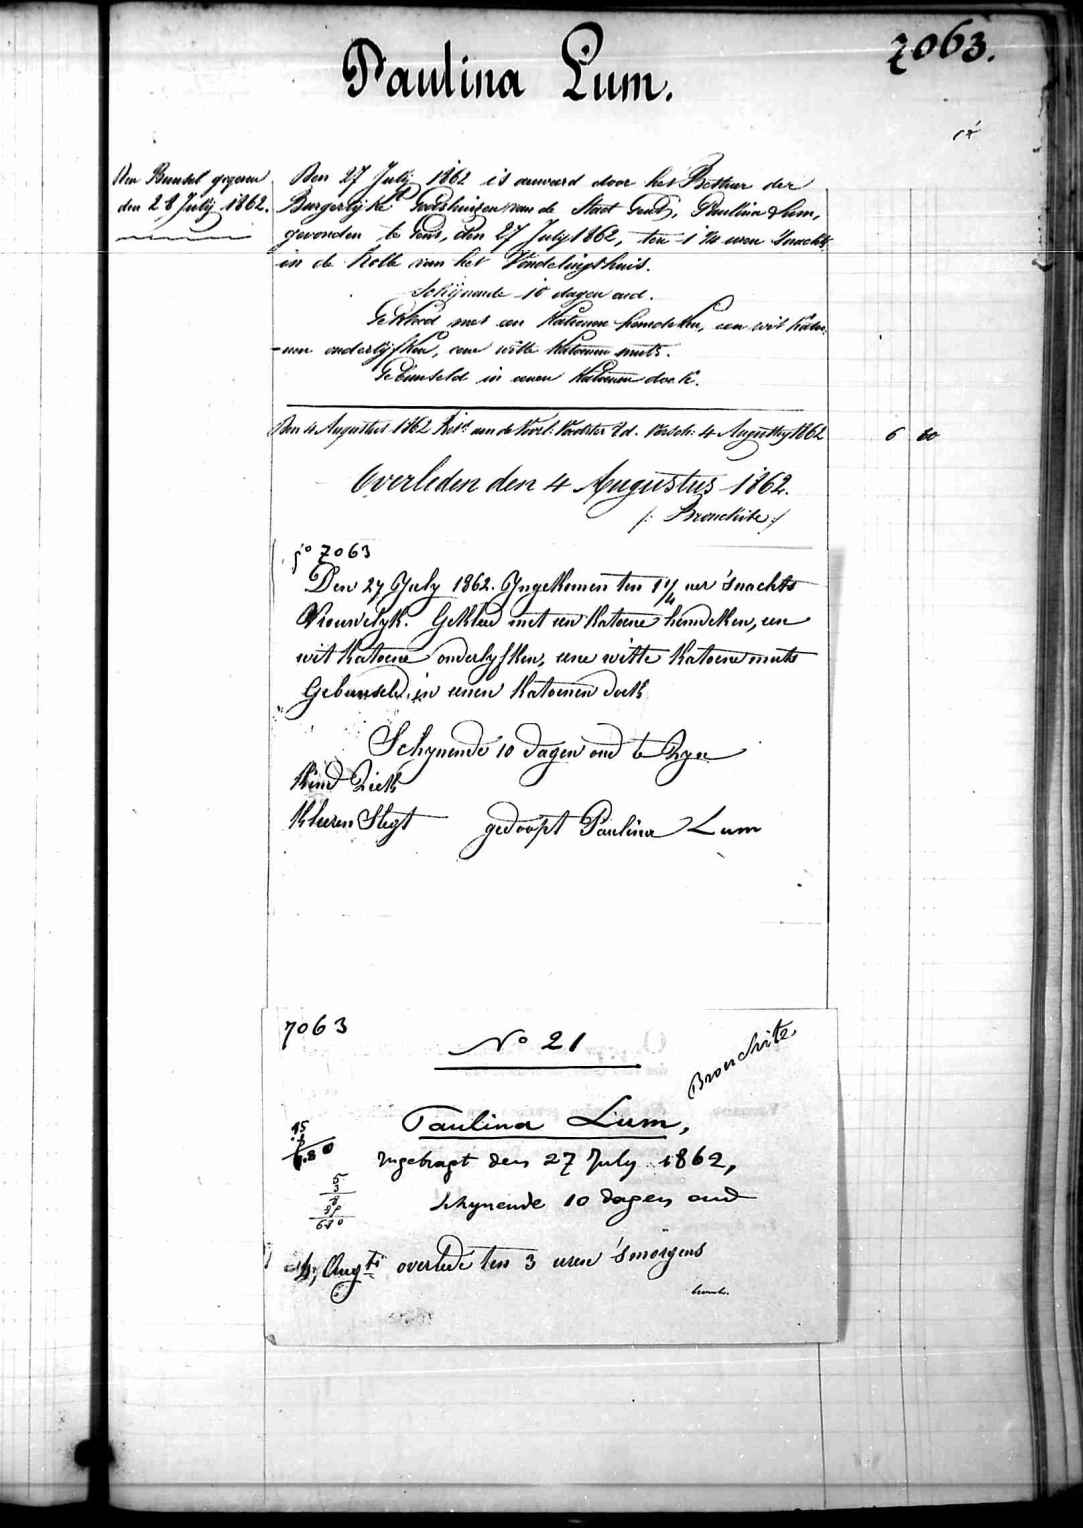 7063.
Paulina Lum.
Den Bunsel gegeven
den 28 July 1862.
Den 27 July 1862 is aanveerd door het Bestuur der
Burgerlijke Godshuizen van de Stad Gent, Paulina Lum,
gevonden te Gent, den 27 July 1862, ten 1 1/4 uren 'snachts
in de Rolle van het Vondelingshuis.
Schijnende 10 dagen oud.
Gekleed met een Katoenen hemdeken, een wit Katoe-
-nen onderlijfken, eene witte Katoenen muts.
Gebunseld in eenen Katoenen doek.
Den 4 Augustus 1862 aan de Voorl. Voedster 4 Augusty 1862 6 80
Overleden den 4 Augustus 1862.
/: Bronchite :/
7063
Den 27 July 1862. Ingekomen ten 1 1/4 uer 'snachts
Vrouwelyk. Gekleed met een Katoene hemdeken, een
wit Katoene onderlyfken, eene witte Katoene muts
Gebunseld in eenen Katoenen doek
Schynende 10 dagen oud te zyn
Kind Ziek
Kleeren Slegt gedoopt Paulina Lum
7063
No 21
Bronchite.
Paulina Lum,
Ingebragt den 27 July 1862,
schynende 10 dagen oud
4 Augti overlede ten 3 uren 'smorgens